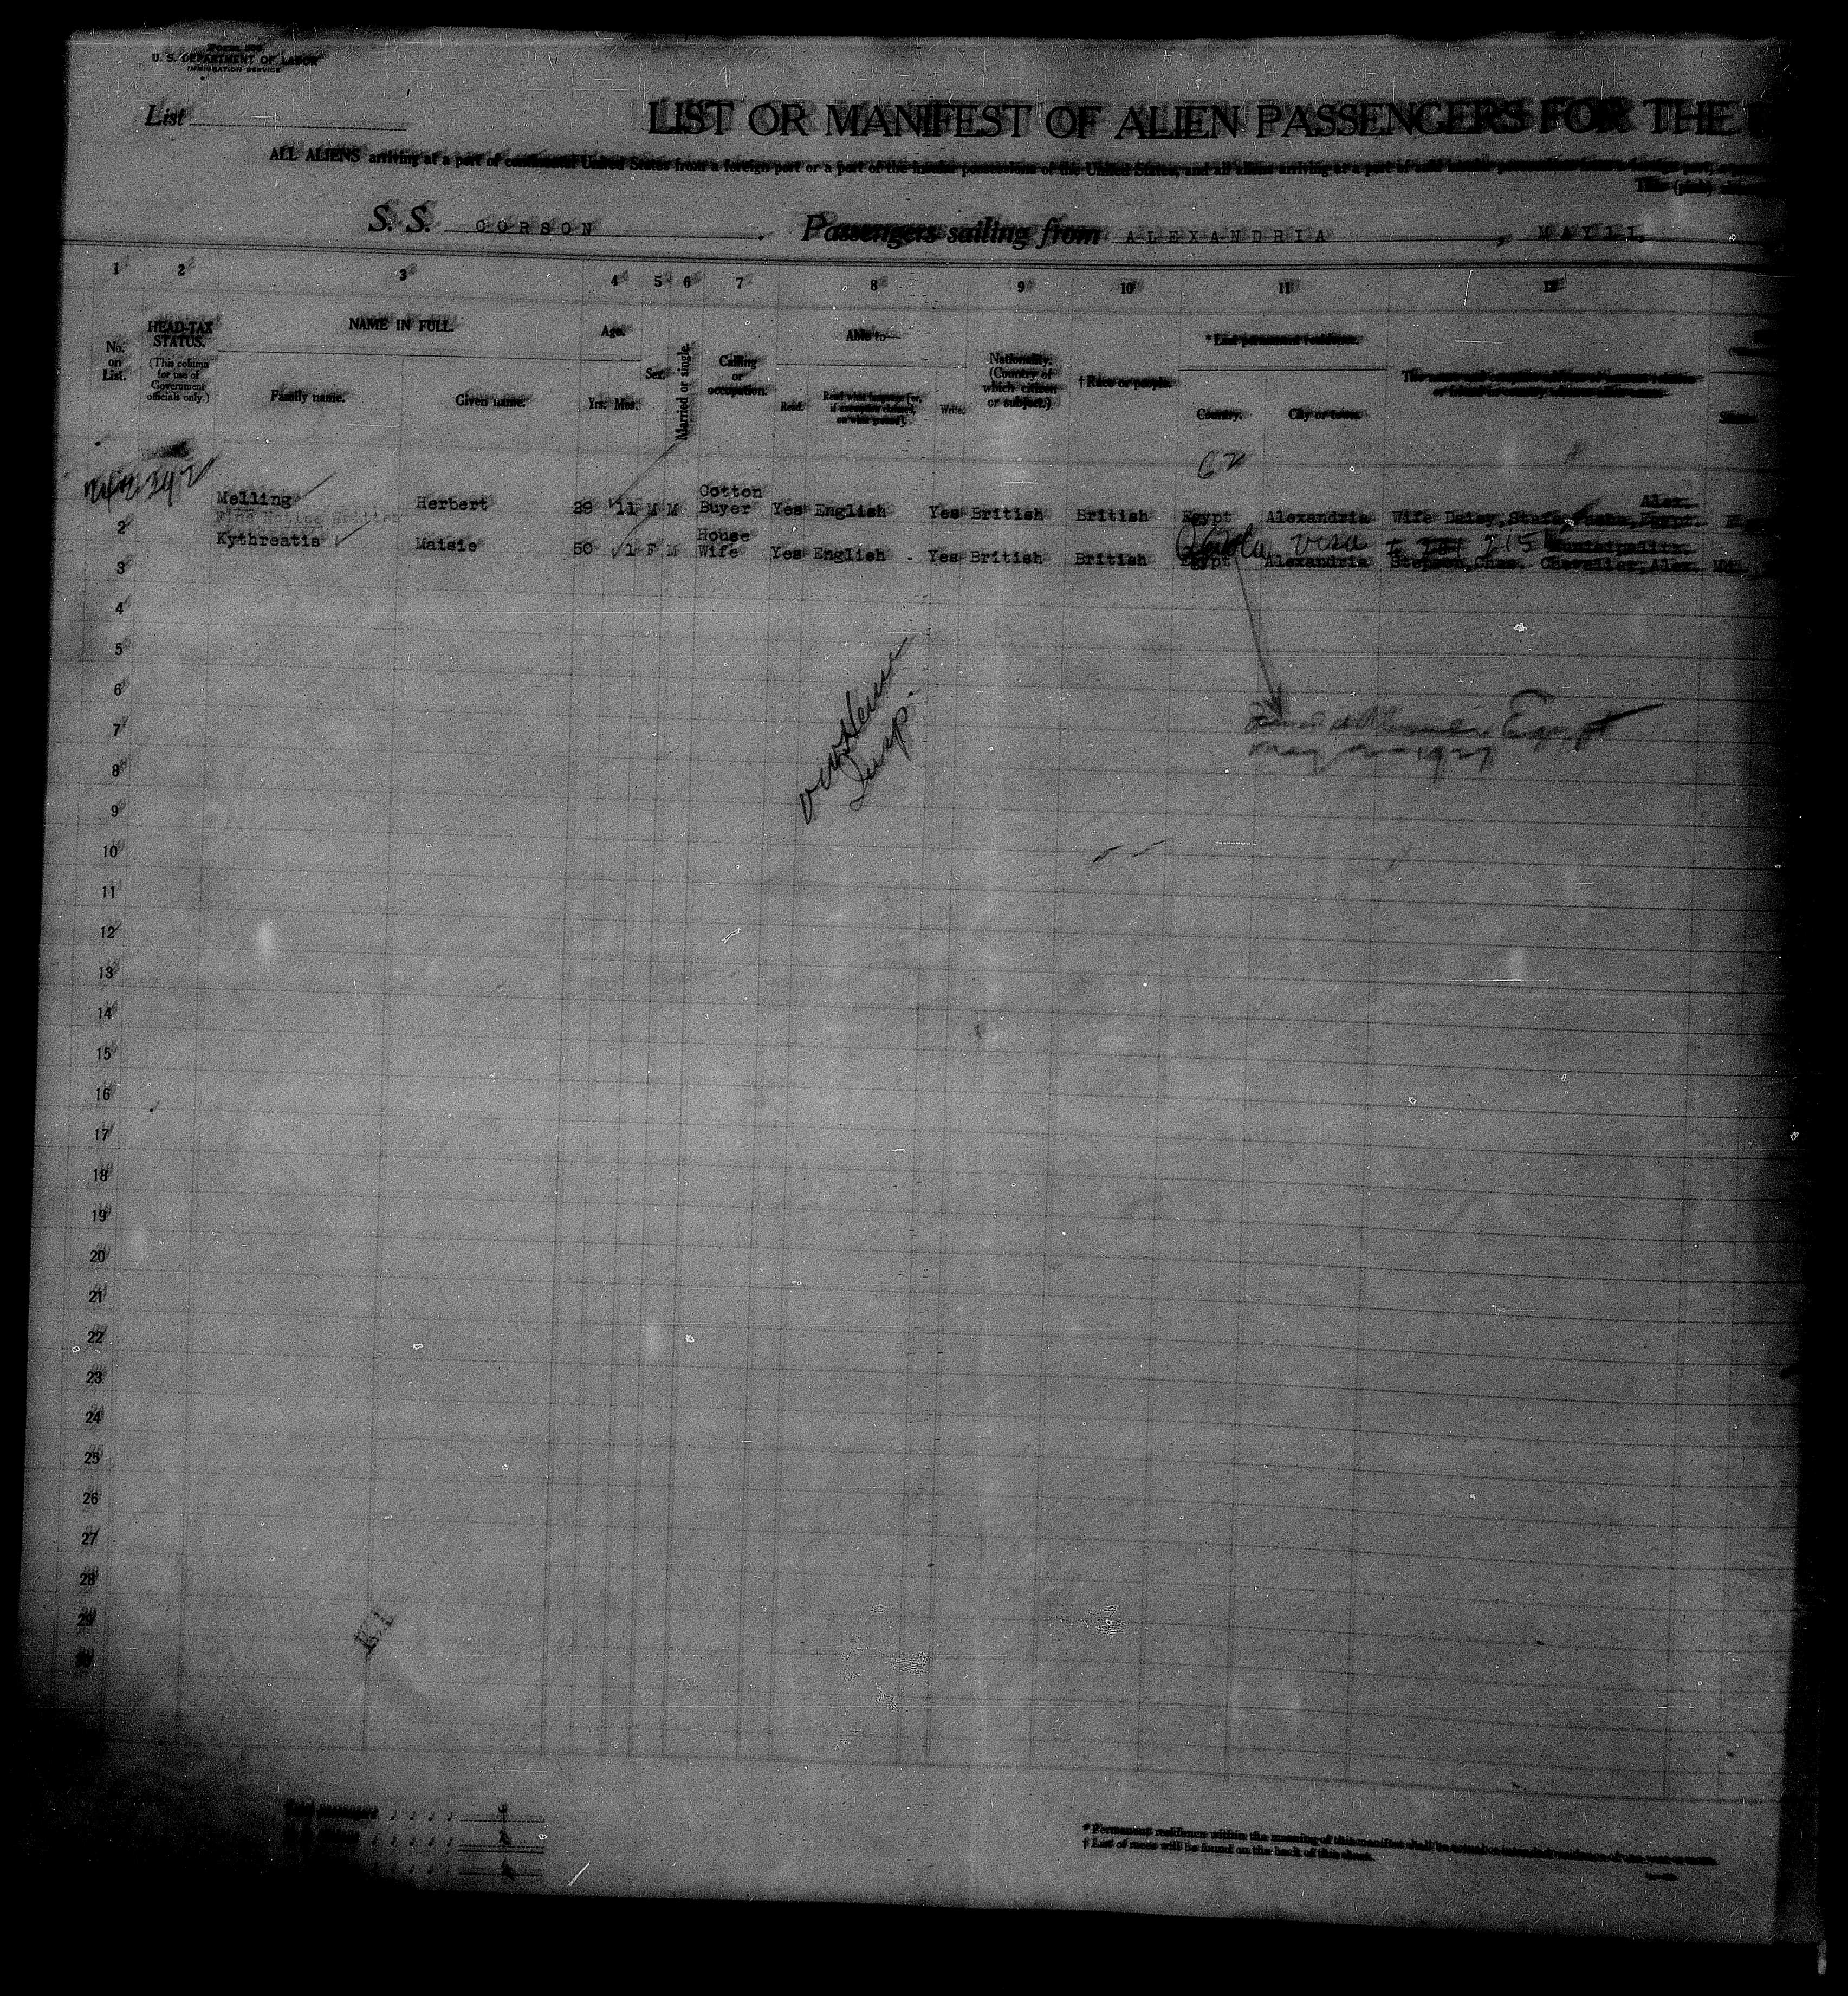 U. S. DEPARTMENT OF LABOR
IMMIGRATION SERVICE
List
LIST OR MANIFEST OF ALIEN PASSENGERS FOR THE
ALL ALIENS arriving at a port of continental United States from a foreign port or a port of the insular possessions of the United States, and all aliens arriving at a port of said insular possessions from a foreign port,
S. S. CORSON Passengers sailing from ALEXANDRIA,
1 2 3 4 5 6 7 8 9 10 11 12
No. on List.
HEAD-TAX STATUS.
(This column for use of Government officials only.)
NAME IN FULL.
Family name. Given name.
Age.
Yrs. Mos.
Sex.
Married or single.
Calling or occupation.
Able to—
Read. Read what language [or, if exemption claimed, on what ground]. Write.
Nationality. (Country of which citizen or subject.)
† Race or people.
* Last permanent residence.
Country. City or town.
62
Melling Herbert 29 11 M M Cotton Buyer Yes English Yes British British Egypt Alexandria Wife Daisy, Alex. Egypt.
Fine Notice Written
2
visa
Kythreatis Maisie 50 1 F M House Wife Yes English - Yes British British Egypt Alexandria Stepson, Chas. Chevalier, Alex.
3
4
5
6
7
Egypt
May 1927
Insp.
8
9
10
11
12
13
14
15
16
17
18
19
20
21
22
23
24
25
26
27
28
29
30
* Permanent residence within the meaning of this manifest shall be actual or intended residence of one year or more.
† List of races will be found on the back of this sheet.